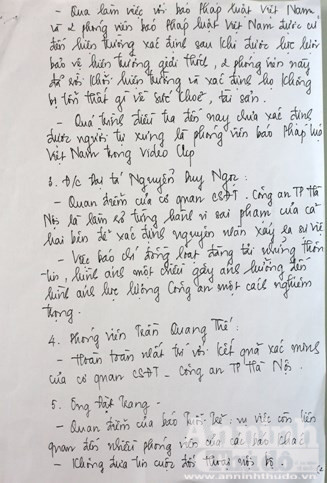 - Qua làm việc với báo Pháp luật Việt Nam
và 2 phóng viên báo Pháp luật Việt Nam được cử
đến hiện trường xác định sau khi được lực lượng
bảo vệ hiện trường giải thích, 2 phóng viên này
đã rời khỏi hiện trường và xác định họ không
bị tổn thất gì về sức khoẻ, tài sản.
- Quá trình điều tra đến nay chưa xác định
được người tự xưng là phóng viên báo Pháp luật
Việt Nam trong Video Clip
3. Đ/c Đại tá Nguyễn Duy Ngọc:
- Quan điểm của cơ quan CSĐT - Công an TP Hà
Nội là làm rõ từng hành vi sai phạm của cả
hai bên để xác định nguyên nhân xảy ra sự việc
- Việc báo chí đồng loạt đăng tải những thông
tin, hình ảnh một chiều gây ảnh hưởng đến
hình ảnh lực lượng Công an một cách nghiêm
trọng.
4. Phóng viên Trần Quang Thế:
- Hoàn toàn nhất trí với kết quả xác minh
của cơ quan CSĐT - Công an TP Hà Nội.
5. Ông Đạt Trang -
- Quan điểm của báo Tuổi trẻ, vụ việc còn liên
quan đến nhiều phóng viên của các báo khác
- Không đưa tin cuộc đối thoại nội bộ.
ANNINH THUDO.VN
www.anninhthudo.vn